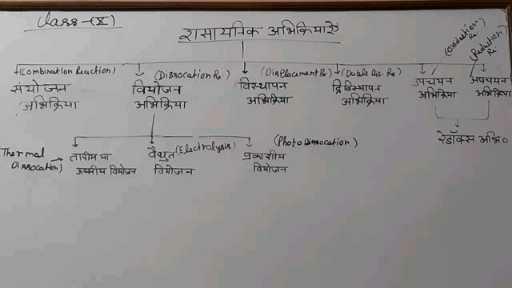 Class-(X)
रासायनिक अभिक्रियाएँ
(Combination Reaction) (Dissocation Re) (Displacement Re) (Double Dis. Re) (Oxidation Re) (Reduction Re)
संयोजन वियोजन विस्थापन द्विविस्थापन उपचयन अपचयन
अभिक्रिया अभिक्रिया अभिक्रिया अभिक्रिया अभिक्रिया अभिक्रिया
रेडॉक्स अभि०
Thermal Dissocation) → तापीय या वैद्युत (Electrolysis) प्रकाशीय (Photo Dissocation)
ऊष्मीय वियोजन वियोजन वियोजन